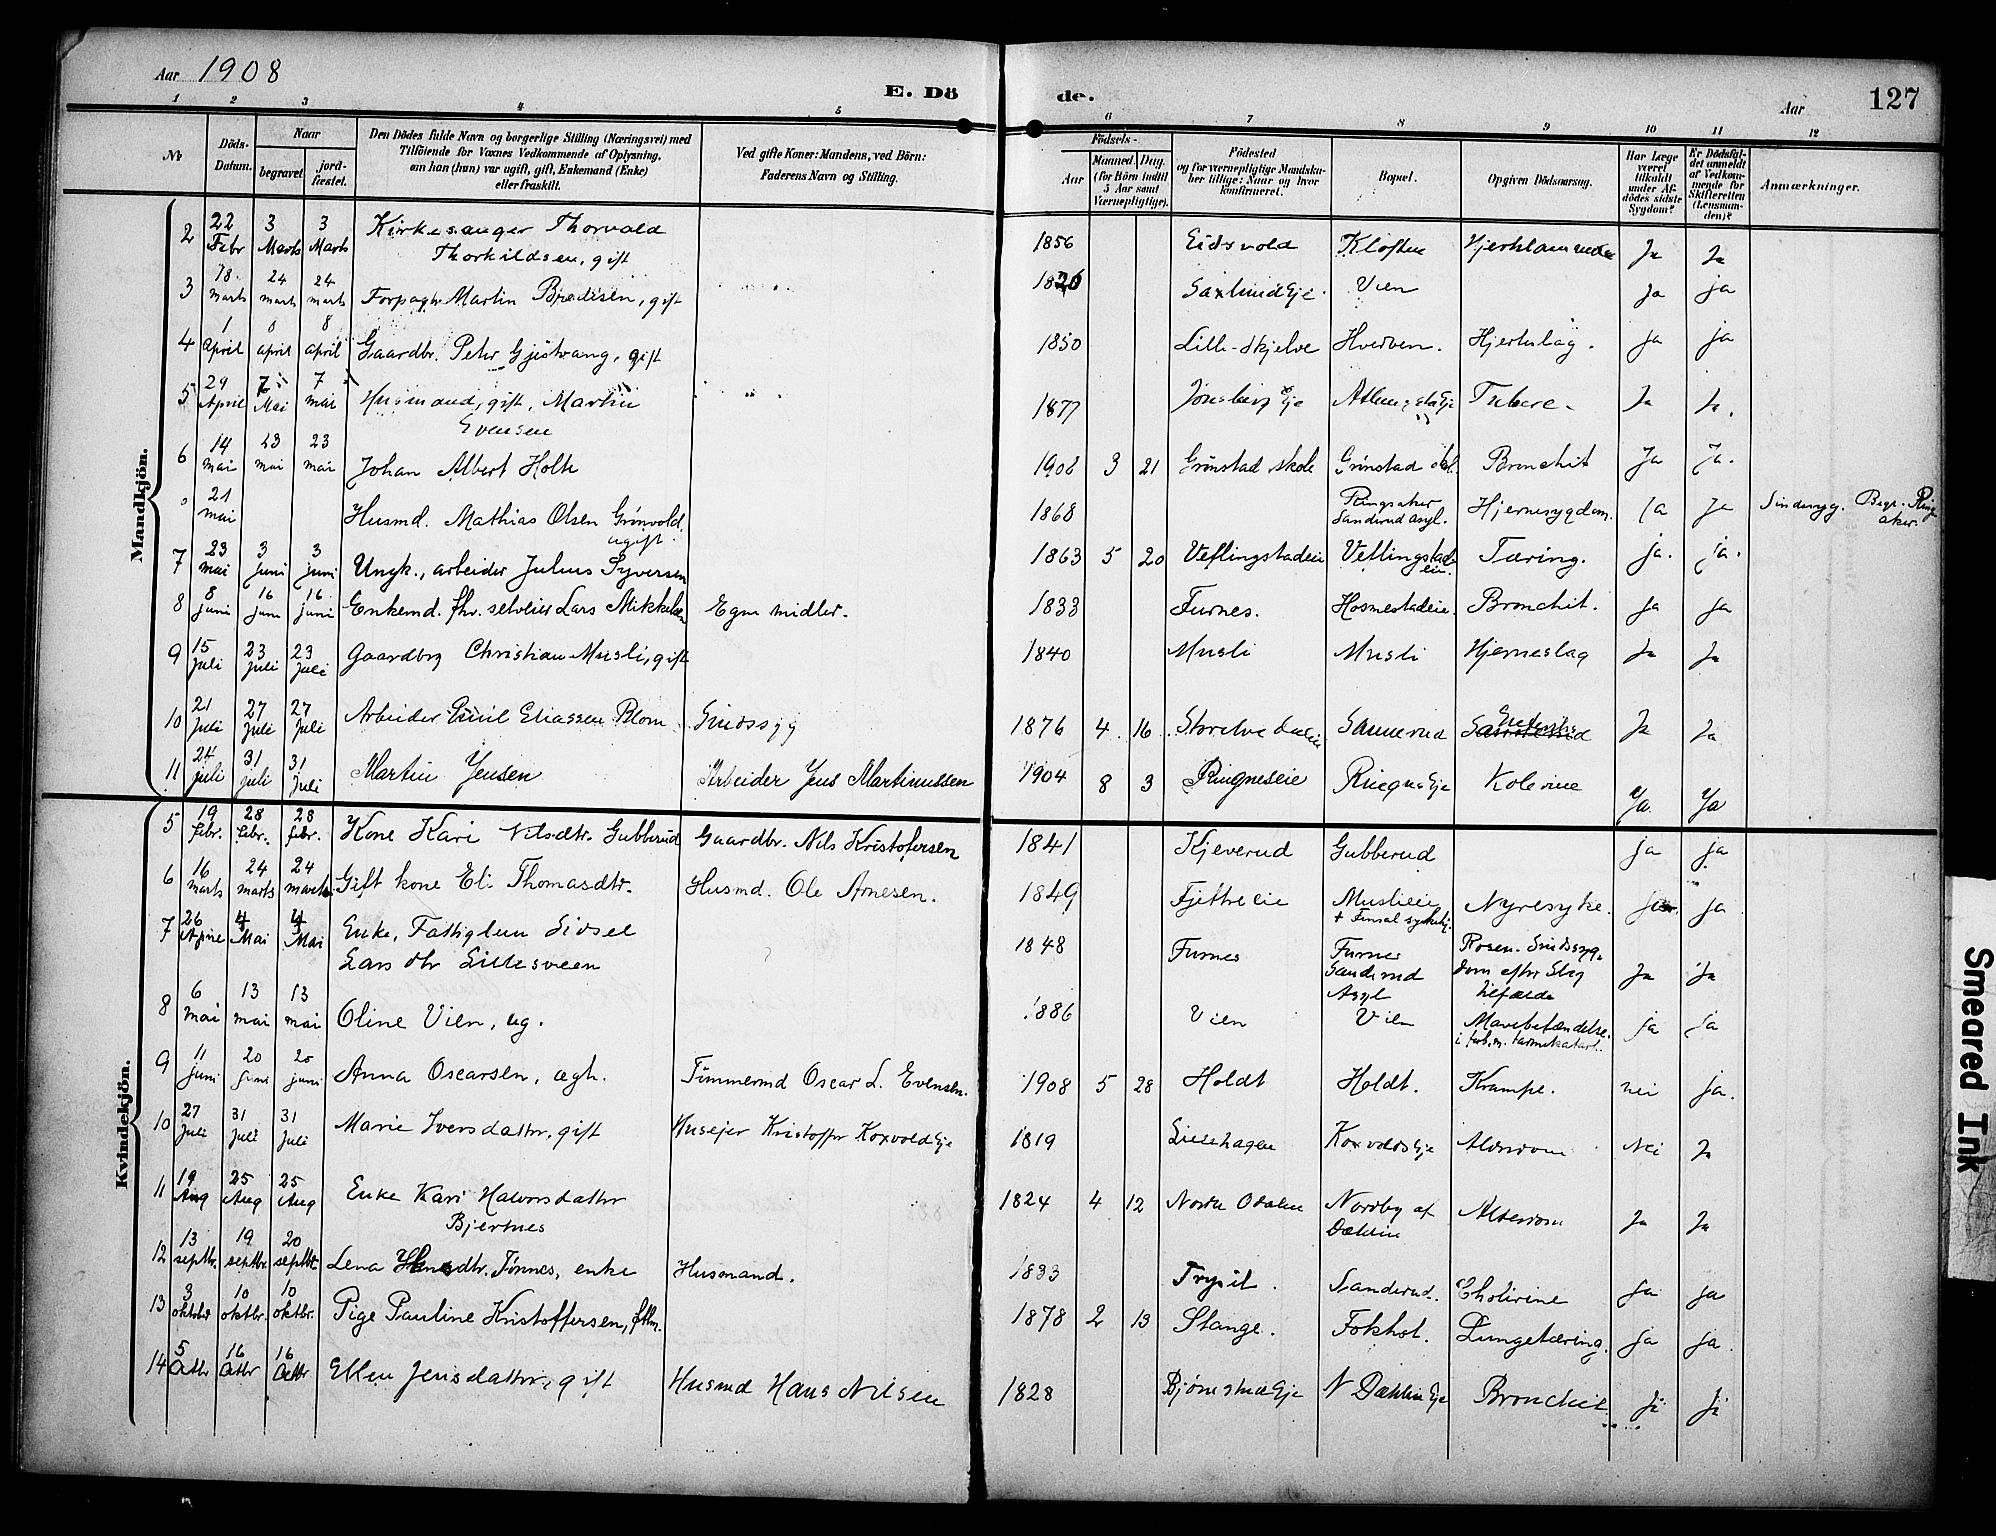 Aar 1908
E. Dö de.
Aar 127
1 2 3 4 5 6 7 8 9 10 11 12
№
Döds-Datum.
Naar
begravet.
jord-fæstet.
Den Dödes fulde Navn og borgerlige Stilling (Næringsvei) med
Tilföiende for Voxnes Vedkommende af Oplysning,
om han (hun) var ugift, gift, Enkemand (Enke)
eller fraskilt.
Ved gifte Koner: Mandens, ved Börn:
Faderens Navn og Stilling.
Födsels-
Aar
Maaned. Dag.
(for Börn indtil
5 Aar samt
Værnepligtige).
Födested
og for værnepligtige Mandska-
ber tillige: Naar og hvor
konfirmeret.
Bopæl.
Opgiven Dödsaarsag.
Har Læge
været
tilkaldt
under Af-
dödes sidste
Sygdom?
Er Dödsfal-
det anmeldt
af Vedkom-
mende for
Skifteretten
(Lensman-
den)?
Anmærkninger.
Mandkjön.
2 22 Febr 3 Marts 3 Marts Kirkesanger Thorvald Thorkildsen, gift 1856 Eidsvold Kloften Ja Ja
3 18 marts 24 marts 24 marts Martin Brodisen, gift 1826 Vien Ja ja
4 1 April 8 april 8 april Gaardbr. Petr Gjestvang, gift 1850 Lille-Skjelve Hverven. Hjerteslag. ja ja
5 29 April 7 Mai 7 mai Husmand, gift, Martin Evensen 1877 Jønsberg Eje Tuberc. Ja Ja.
6 14 mai 23 mai 23 mai Johan Albert Holte 1908 3 21 Grinstad skole Grinstad skl. Bronchit Ja Ja.
0 21 mai Husmd. Mathias Olsen Grinvold, ugift. 1868 Ringsaker Sanderud asyl. Hjernesygdom. Ja Ja Sindssyg. Begr. Ringsaker.
7 23 mai 3 juni 3 juni Ungk., arbeider Julius Syversen 1863 5 20 Veflingstadeie Veflingstadeie. Tæring. ja. ja.
8 8 juni 16 juni 16 juni Enkemd. fhv. selveier Lars Mikkelsen Egne midler. 1833 Furnes. Hosmestadeie. Bronchit. ja ja
9 15 Juli 23 Juli 23 Juli Gaardbrg Christian Musli, gift 1840 Musli Musli Hjerneslag Ja Ja
10 21 Juli 27 Juli 27 Juli Arbeider Emil Eliassen Blom Sindssyg 1876 4 16 Sannerud Ja Ja
11 24 juli 31 juli 31 Juli Martin Jensen Arbeider Jens Martinussen 1904 8 3 Ringneseie Ringnes Eje Kolerine Ja Ja
Kvindekjön.
5 19 febr. 28 febr. 28 febr. Kone Kari Nilsdtr. Gubberud Gaardbr. Nils Kristofersen 1841 Kjeverud Gubberud ja ja
6 16 marts 24 marts 24 marts Gift kone Eli Thomasdtr. Husmd. Ole Arnesen. 1849 Fjetreeie Muslieie + Finsal sykehj. Nyresyke. ja
7 26 April 4 Mai 4 Mai Enke, Fattiglem Sidsel Lars dtr Lillesveen 1848 Furnes Furnes Sanderud Asyl Rosen. Sindssygdom efter Slag tilfælde Ja Ja
8 6 mai 13 mai 13 mai Oline Vien, ug. 1886 Vien Vien Mavebetændelse. ja ja
9 11 juni 20 juni 20 juni Anna Oscarsen, ægh. Tømmermd Oscar L. Evensen. 1908 5 28 Holdt Holdt. Krampe. nei ja.
10 27 Juli 31 juli 31 juli Marie Iversdatter, gift Husejer Kristoffer Koxvold Eje 1819 Liesehagen Koxvolds Eje Alderdom Nei Ja
11 19 Aug 25 Aug 25 Aug Enke Kari Halvorsdatter Bjertnes 1824 4 12 Nordre Odalen Nordby af Dæhlin Alderdom Ja Ja
12 13 septbr. 19 septbr. 20 septbr. Lena Tønnes, enke Husmand. 1833 Trysil. Sanderud. Cholerine ja ja
13 3 oktober 10 oktbr. 10 oktbr. Pige Pauline Kristoffersen, 1878 2 13 Stange. Fokhol. Lungetæring. ja ja.
14 5 Octbr 16 Octbr 16 Octbr Ellen Jensdatter, gift Husmd Hans Nilsen 1828 Bjørnstad Eje N Dæhlin Eje Bronchit Ja Ja
Smeared Ink